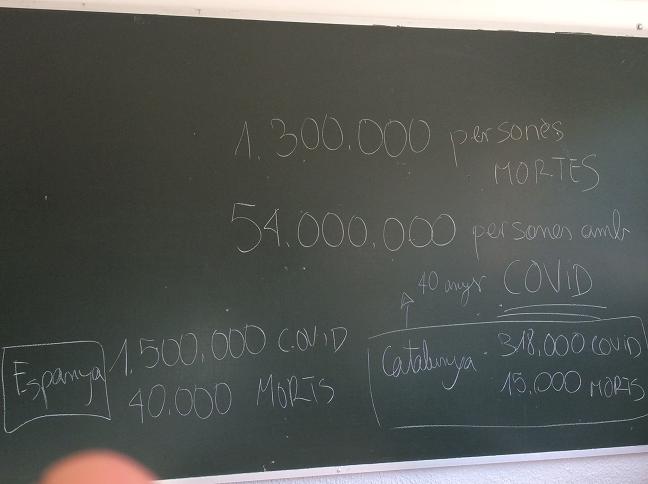 1.300.000 persones
MORTES
54.000.000 persones amb
COVID
40 anys
Espanya 1.500.000 COVID
40.000 MORTS
Catalunya 318.000 COVID
15.000 MORTS